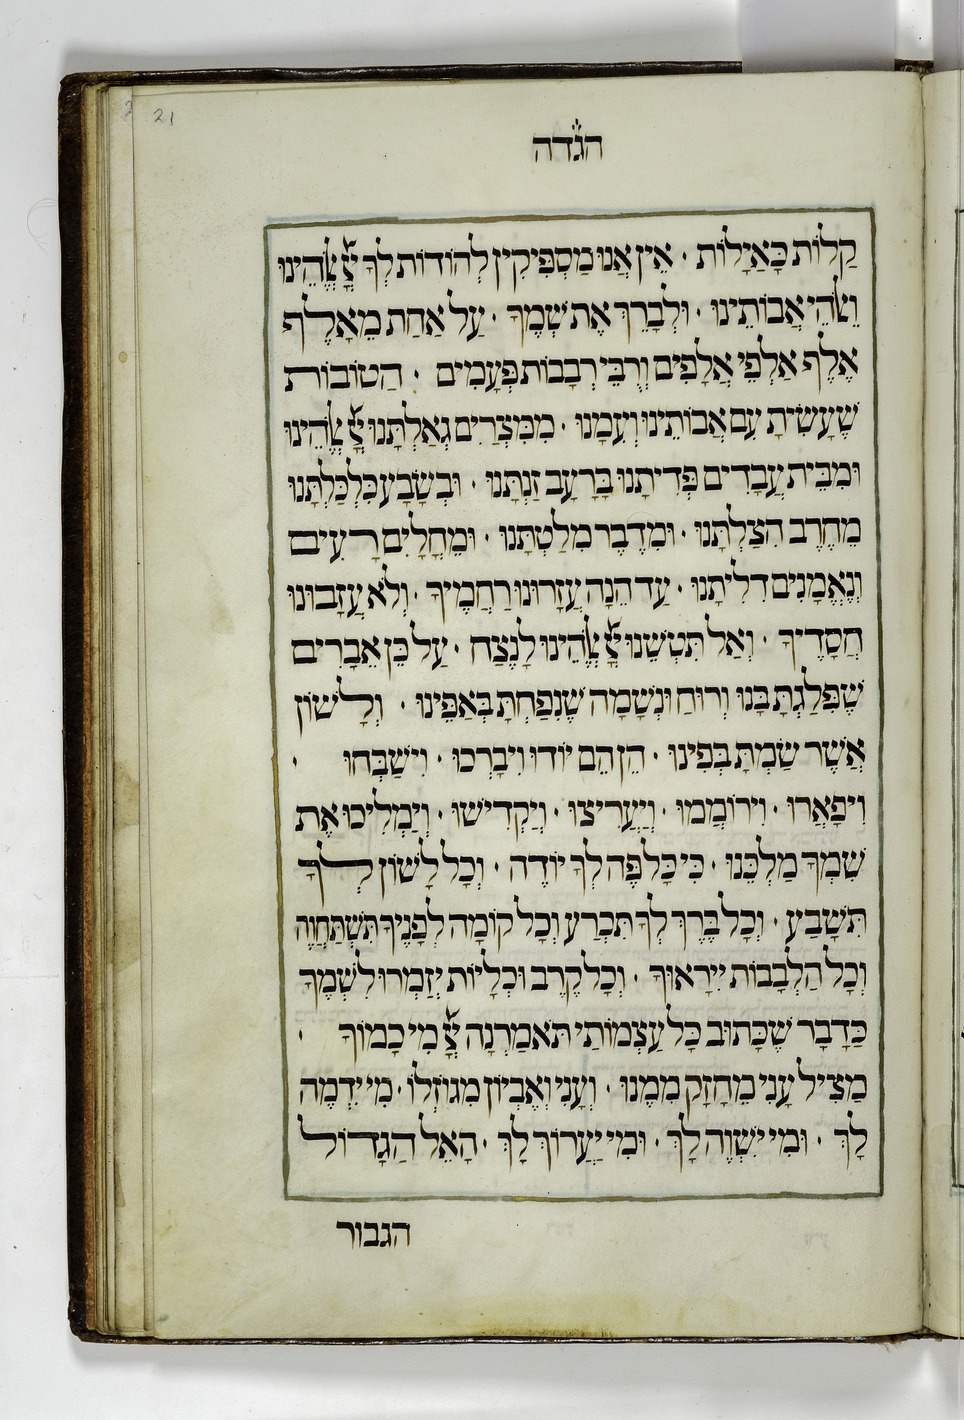 21
הגדה
קַלּוֹת כָּאַיָּלוֹת · אֵין אֲנוּ מַסְפִּיקִין לְהוֹדוֹת לְךָ יְיָ אֱלֹהֵינוּ
וֵאלֹהֵי אֲבוֹתֵינוּ · וּלְבָרֵךְ אֶת שְׁמֶךָ · עַל אַחַת מֵאָלֶף
אֶלֶף אַלְפֵי אֲלָפִים וְרֻבֵּי רְבָבוֹת פְּעָמִים · הַטּוֹבוֹת
שֶׁעָשִׂיתָ עִם אֲבוֹתֵינוּ וְעִמָּנוּ · מִמִּצְרַיִם גְּאַלְתָּנוּ יְיָ אֱלֹהֵינוּ
וּמִבֵּית עֲבָדִים פְּדִיתָנוּ בָּרָעָב זַנְתָּנוּ · וּבְשָׂבָע כִּלְכַּלְתָּנוּ
מֵחֶרֶב הִצַּלְתָּנוּ · וּמִדֶּבֶר מִלַּטְתָּנוּ · וּמֵחֳלָיִם רָעִים
וְנֶאֱמָנִים דִלִּיתָנוּ · עַד הֵנָּה עֲזָרוּנוּ רַחֲמֶיךָ · וְלֹא עֲזָבוּנוּ
חֲסָדֶיךָ · וְאַל תִּטְּשֵׁנוּ יְיָ אֱלֹהֵינוּ לָנֶצַח · עַל כֵּן אֵבָרִים
שֶׁפִּלַּגְתָּ בָּנוּ וְרוּחַ וּנְשָׁמָה שֶׁנָּפַחְתָּ בְּאַפֵּינוּ · וְלָשׁוֹן
אֲשֶׁר שַׂמְתָּ בְּפִינוּ · הֵן הֵם יוֹדוּ וִיבָרְכוּ · וִישַׁבְּחוּ ·
וִיפָאֲרוּ · וִירוֹמֲמוּ · וְיַעֲרִיצוּ · וְיַקְדִּישׁוּ · וְיַמְלִיכוּ אֶת
שִׁמְךָ מַלְכֵּנוּ · כִּי כָּל פֶּה לְךָ יוֹדֶה · וְכָל לָשׁוֹן לְךָ
תִּשָּׁבַע · וְכָל בֶּרֶךְ לְךָ תִּכְרַע וְכָל קוֹמָה לְפָנֶיךָ תִּשְׁתַּחֲוֶה
וְכָל הַלְּבָבוֹת יִירָאוּךָ · וְכָל קֶרֶב וּכְלָיוֹת יְזַמְּרוּ לִשְׁמֶךָ
כַּדָּבָר שֶׁכָּתוּב כָּל עַצְמוֹתַי תֹּאמַרְנָה יְיָ מִי כָמוֹךָ ·
מַצִּיל עָנִי מֵחָזָק מִמֶּנּוּ · וְעָנִי וְאֶבְיוֹן מִגּוֹזְלוֹ · מִי יִדְמֶה
לָךְ · וּמִי יִשְׁוֶה לָךְ · וּמִי יַעֲרוֹךְ לָךְ · הָאֵל הַגָּדוֹל
הגבור